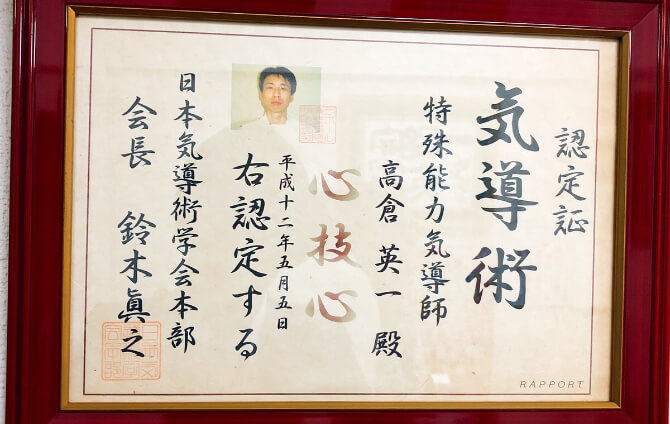 認定証
気導術
特殊能力気導師
高倉英一殿
心技心
平成十二年五月五日
右認定する
日本気導術学会本部
会長 鈴木眞之
RAPPORT